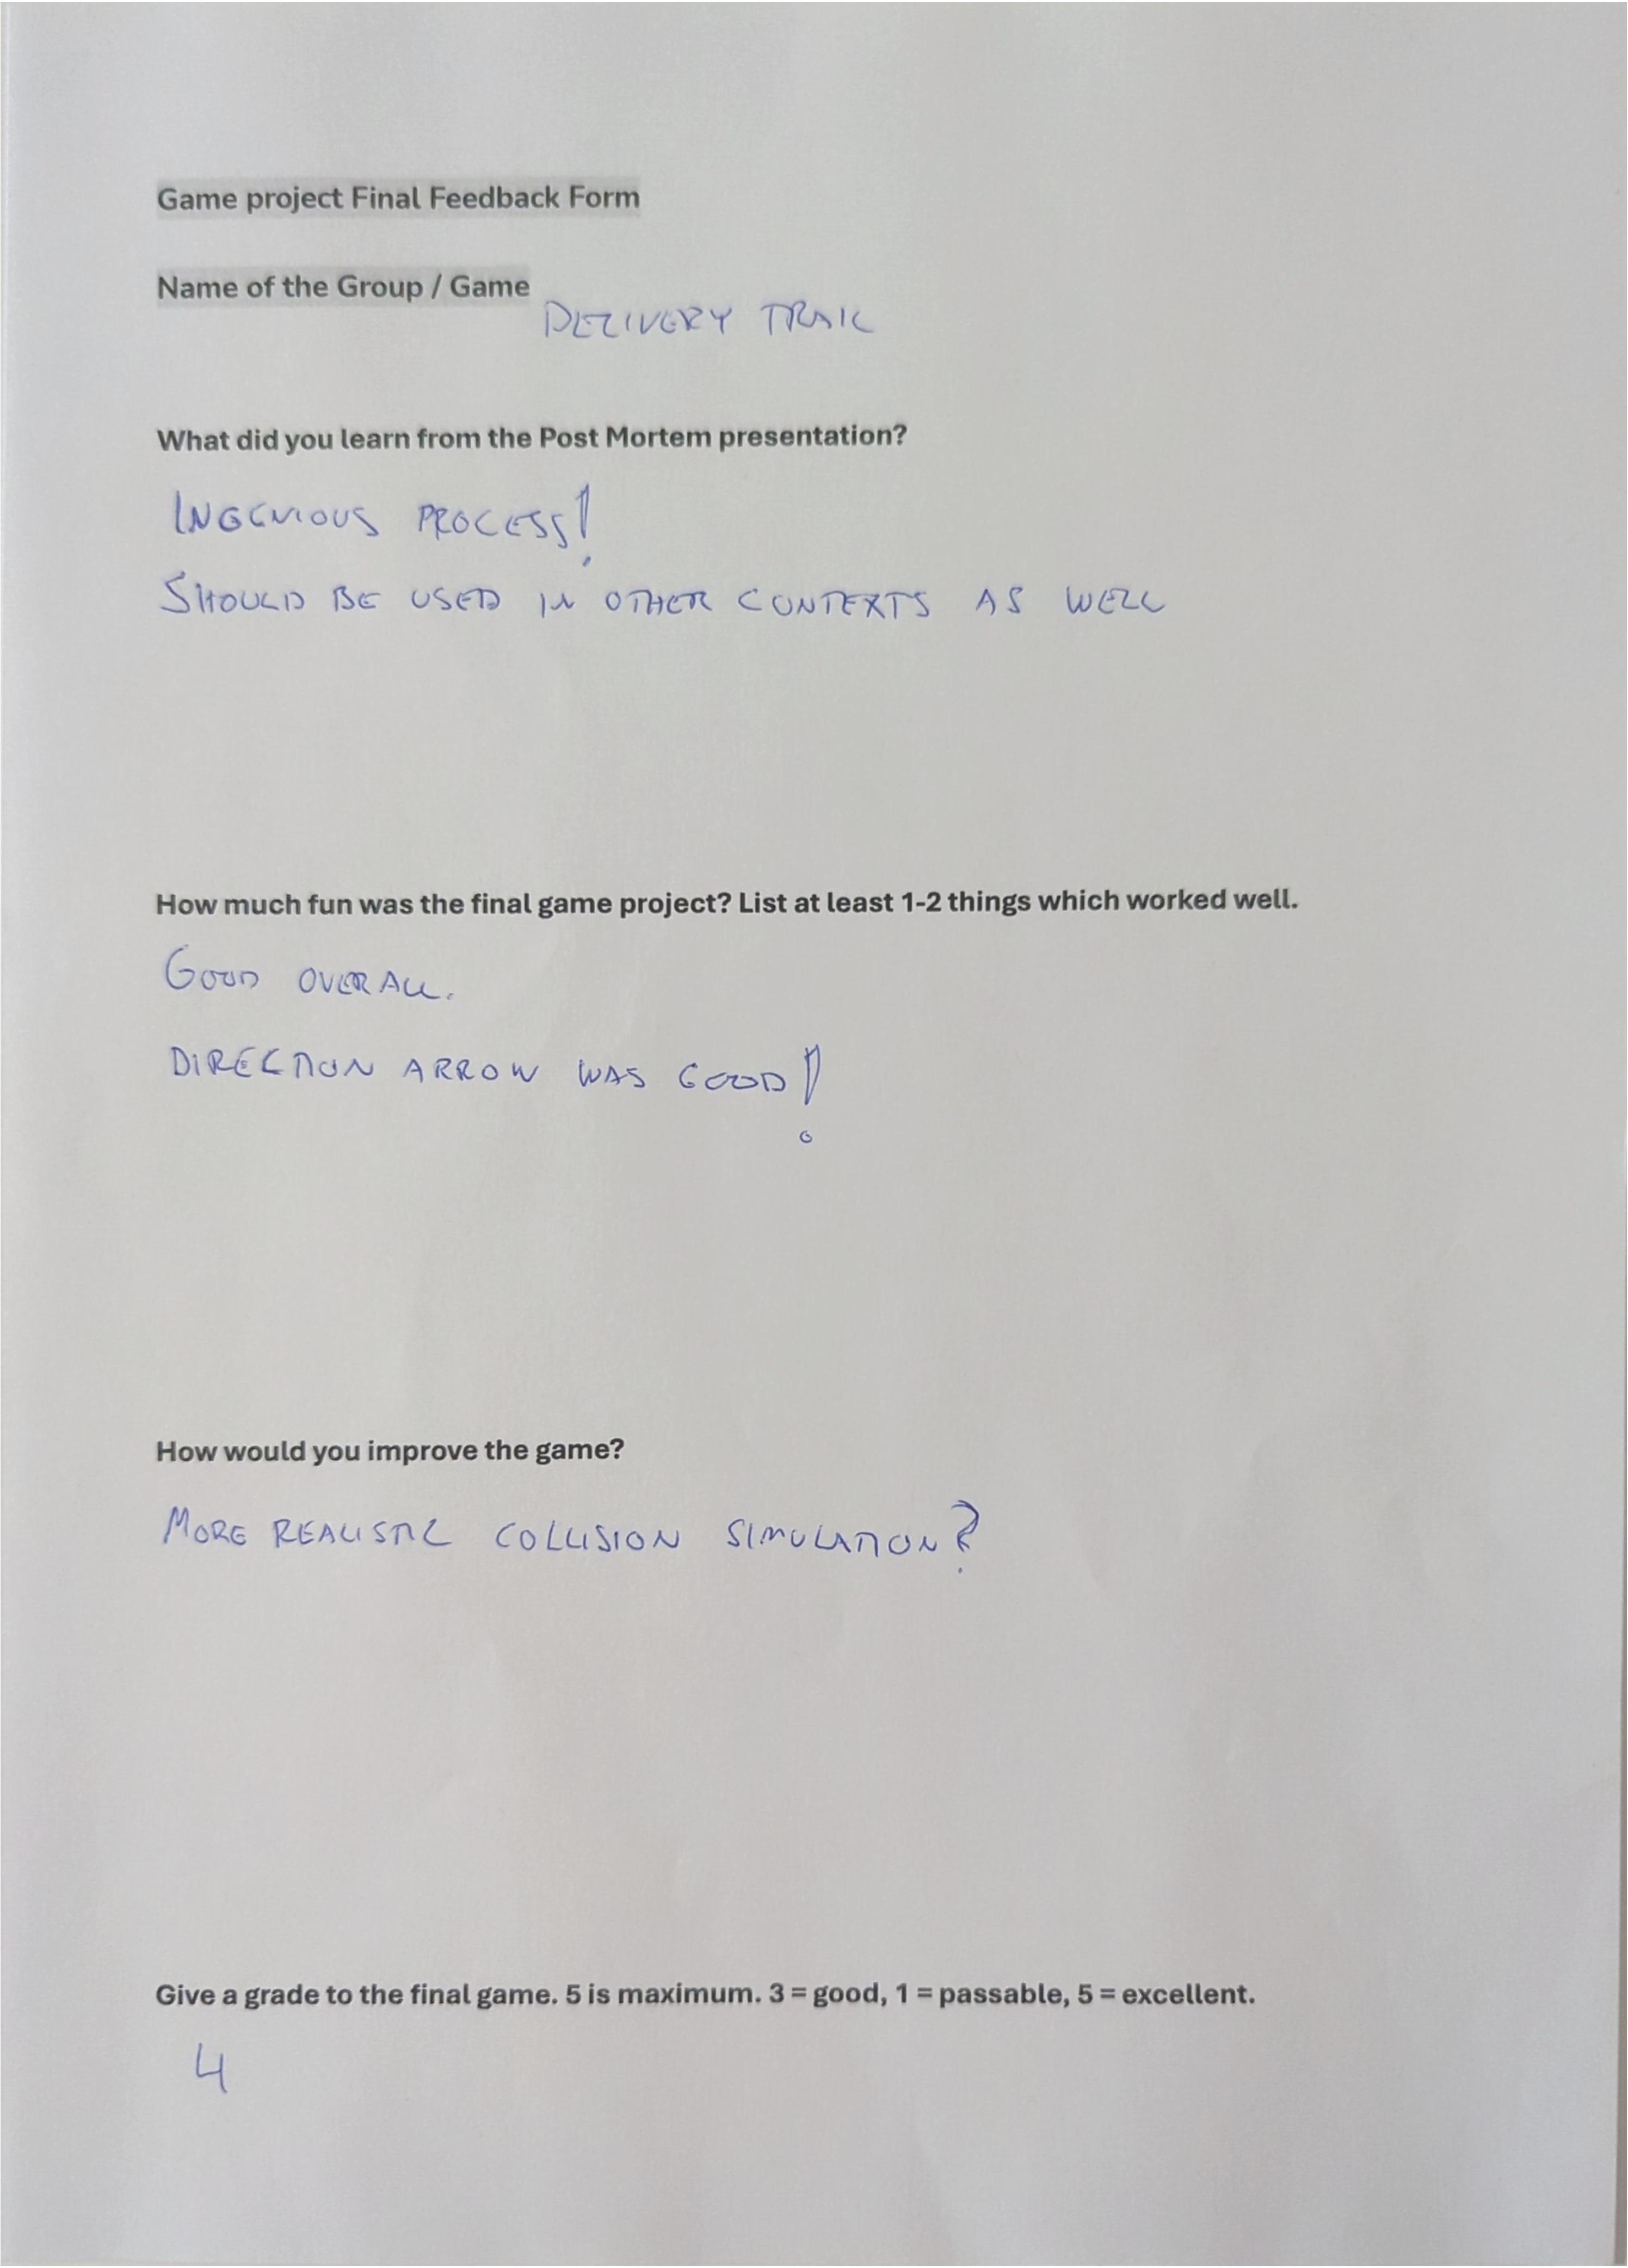 Game project Final Feedback Form
Name of the Group / Game
DELIVERY TRAIL
What did you learn from the Post Mortem presentation?
INGENIOUS PROCESS!
SHOULD BE USED IN OTHER CONTEXTS AS WELL
How much fun was the final game project? List at least 1-2 things which worked well.
GOOD OVERALL.
DIRECTION ARROW WAS GOOD!
How would you improve the game?
MORE REALISTIC COLLISION SIMULATION?
Give a grade to the final game. 5 is maximum. 3 = good, 1 = passable, 5 = excellent.
4